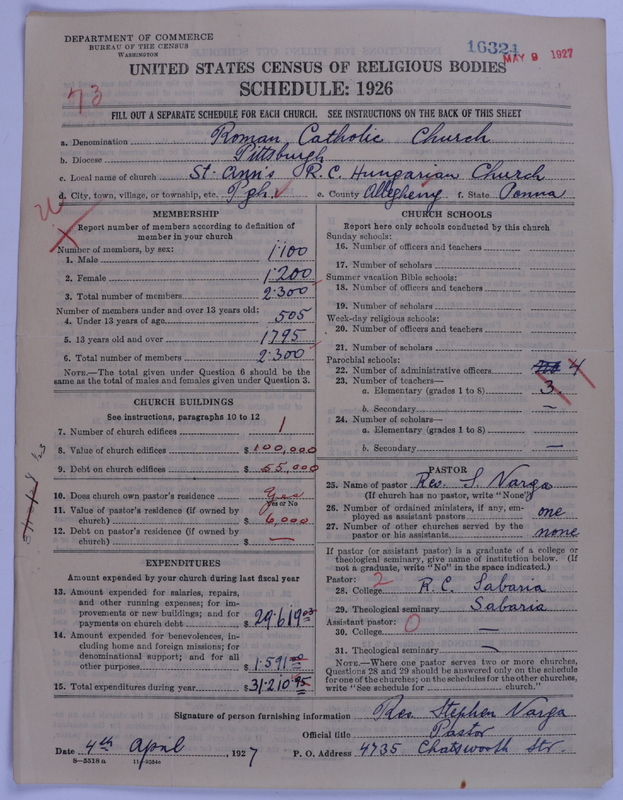 DEPARTMENT OF COMMERCE
BUREAU OF THE CENSUS
WASHINGTON
16324
MAY 9 1927
UNITED STATES CENSUS OF RELIGIOUS BODIES
SCHEDULE: 1926
73
FILL OUT A SEPARATE SCHEDULE FOR EACH CHURCH. SEE INSTRUCTIONS ON THE BACK OF THIS SHEET
a. Denomination Roman Catholic Church
b. Diocese Pittsburgh
c. Local name of church St. Ann's R.C. Hungarian Church
d. City, town, village, or township, etc. Pgh. e. County Allegheny f. State Penna
MEMBERSHIP
Report number of members according to definition of
member in your church
Number of members, by sex:
1. Male 1·100
2. Female 1·200
3. Total number of members 2·300
Number of members under and over 13 years old:
4. Under 13 years of age 505
5. 13 years old and over 1795
6. Total number of members 2·300
NOTE.—The total given under Question 6 should be the
same as the total of males and females given under Question 3.
CHURCH BUILDINGS
See instructions, paragraphs 10 to 12
7. Number of church edifices 1
8. Value of church edifices $100,000
9. Debt on church edifices $55,000
10. Does church own pastor's residence Yes
Yes or No
11. Value of pastor's residence (if owned by
church) $6,000
12. Debt on pastor's residence (if owned by
church) $ —
EXPENDITURES
Amount expended by your church during last fiscal year
13. Amount expended for salaries, repairs,
and other running expenses; for im-
provements or new buildings; and for
payments on church debt $29·619.03
14. Amount expended for benevolences, in-
cluding home and foreign missions; for
denominational support; and for all
other purposes $1·591
15. Total expenditures during year $31·210.95
CHURCH SCHOOLS
Report here only schools conducted by this church
Sunday schools:
16. Number of officers and teachers
17. Number of scholars
Summer vacation Bible schools:
18. Number of officers and teachers
19. Number of scholars
Week-day religious schools:
20. Number of officers and teachers
21. Number of scholars
Parochial schools:
22. Number of administrative officers 4
23. Number of teachers—
a. Elementary (grades 1 to 8) 3.
b. Secondary —
24. Number of scholars—
a. Elementary (grades 1 to 8)
b. Secondary —
PASTOR
25. Name of pastor Rev. S. Varga
(If church has no pastor, write "None")
26. Number of ordained ministers, if any, em-
ployed as assistant pastors one
27. Number of other churches served by the
pastor or his assistants none
If pastor (or assistant pastor) is a graduate of a college or
theological seminary, give name of institution below. (If
not a graduate, write "No" in the space indicated.)
Pastor: 2
28. College R.C. Sabaria
29. Theological seminary Sabaria
Assistant pastor: 0
30. College —
31. Theological seminary —
NOTE.—Where one pastor serves two or more churches,
Questions 28 and 29 should be answered only on the schedule
for one of the churches; on the schedules for the other churches,
write "See schedule for church."
Signature of person furnishing information Rev. Stephen Varga
Official title Pastor
Date 4th April, 1927 P. O. Address 4735 Chatsworth Str.
8—5518 a